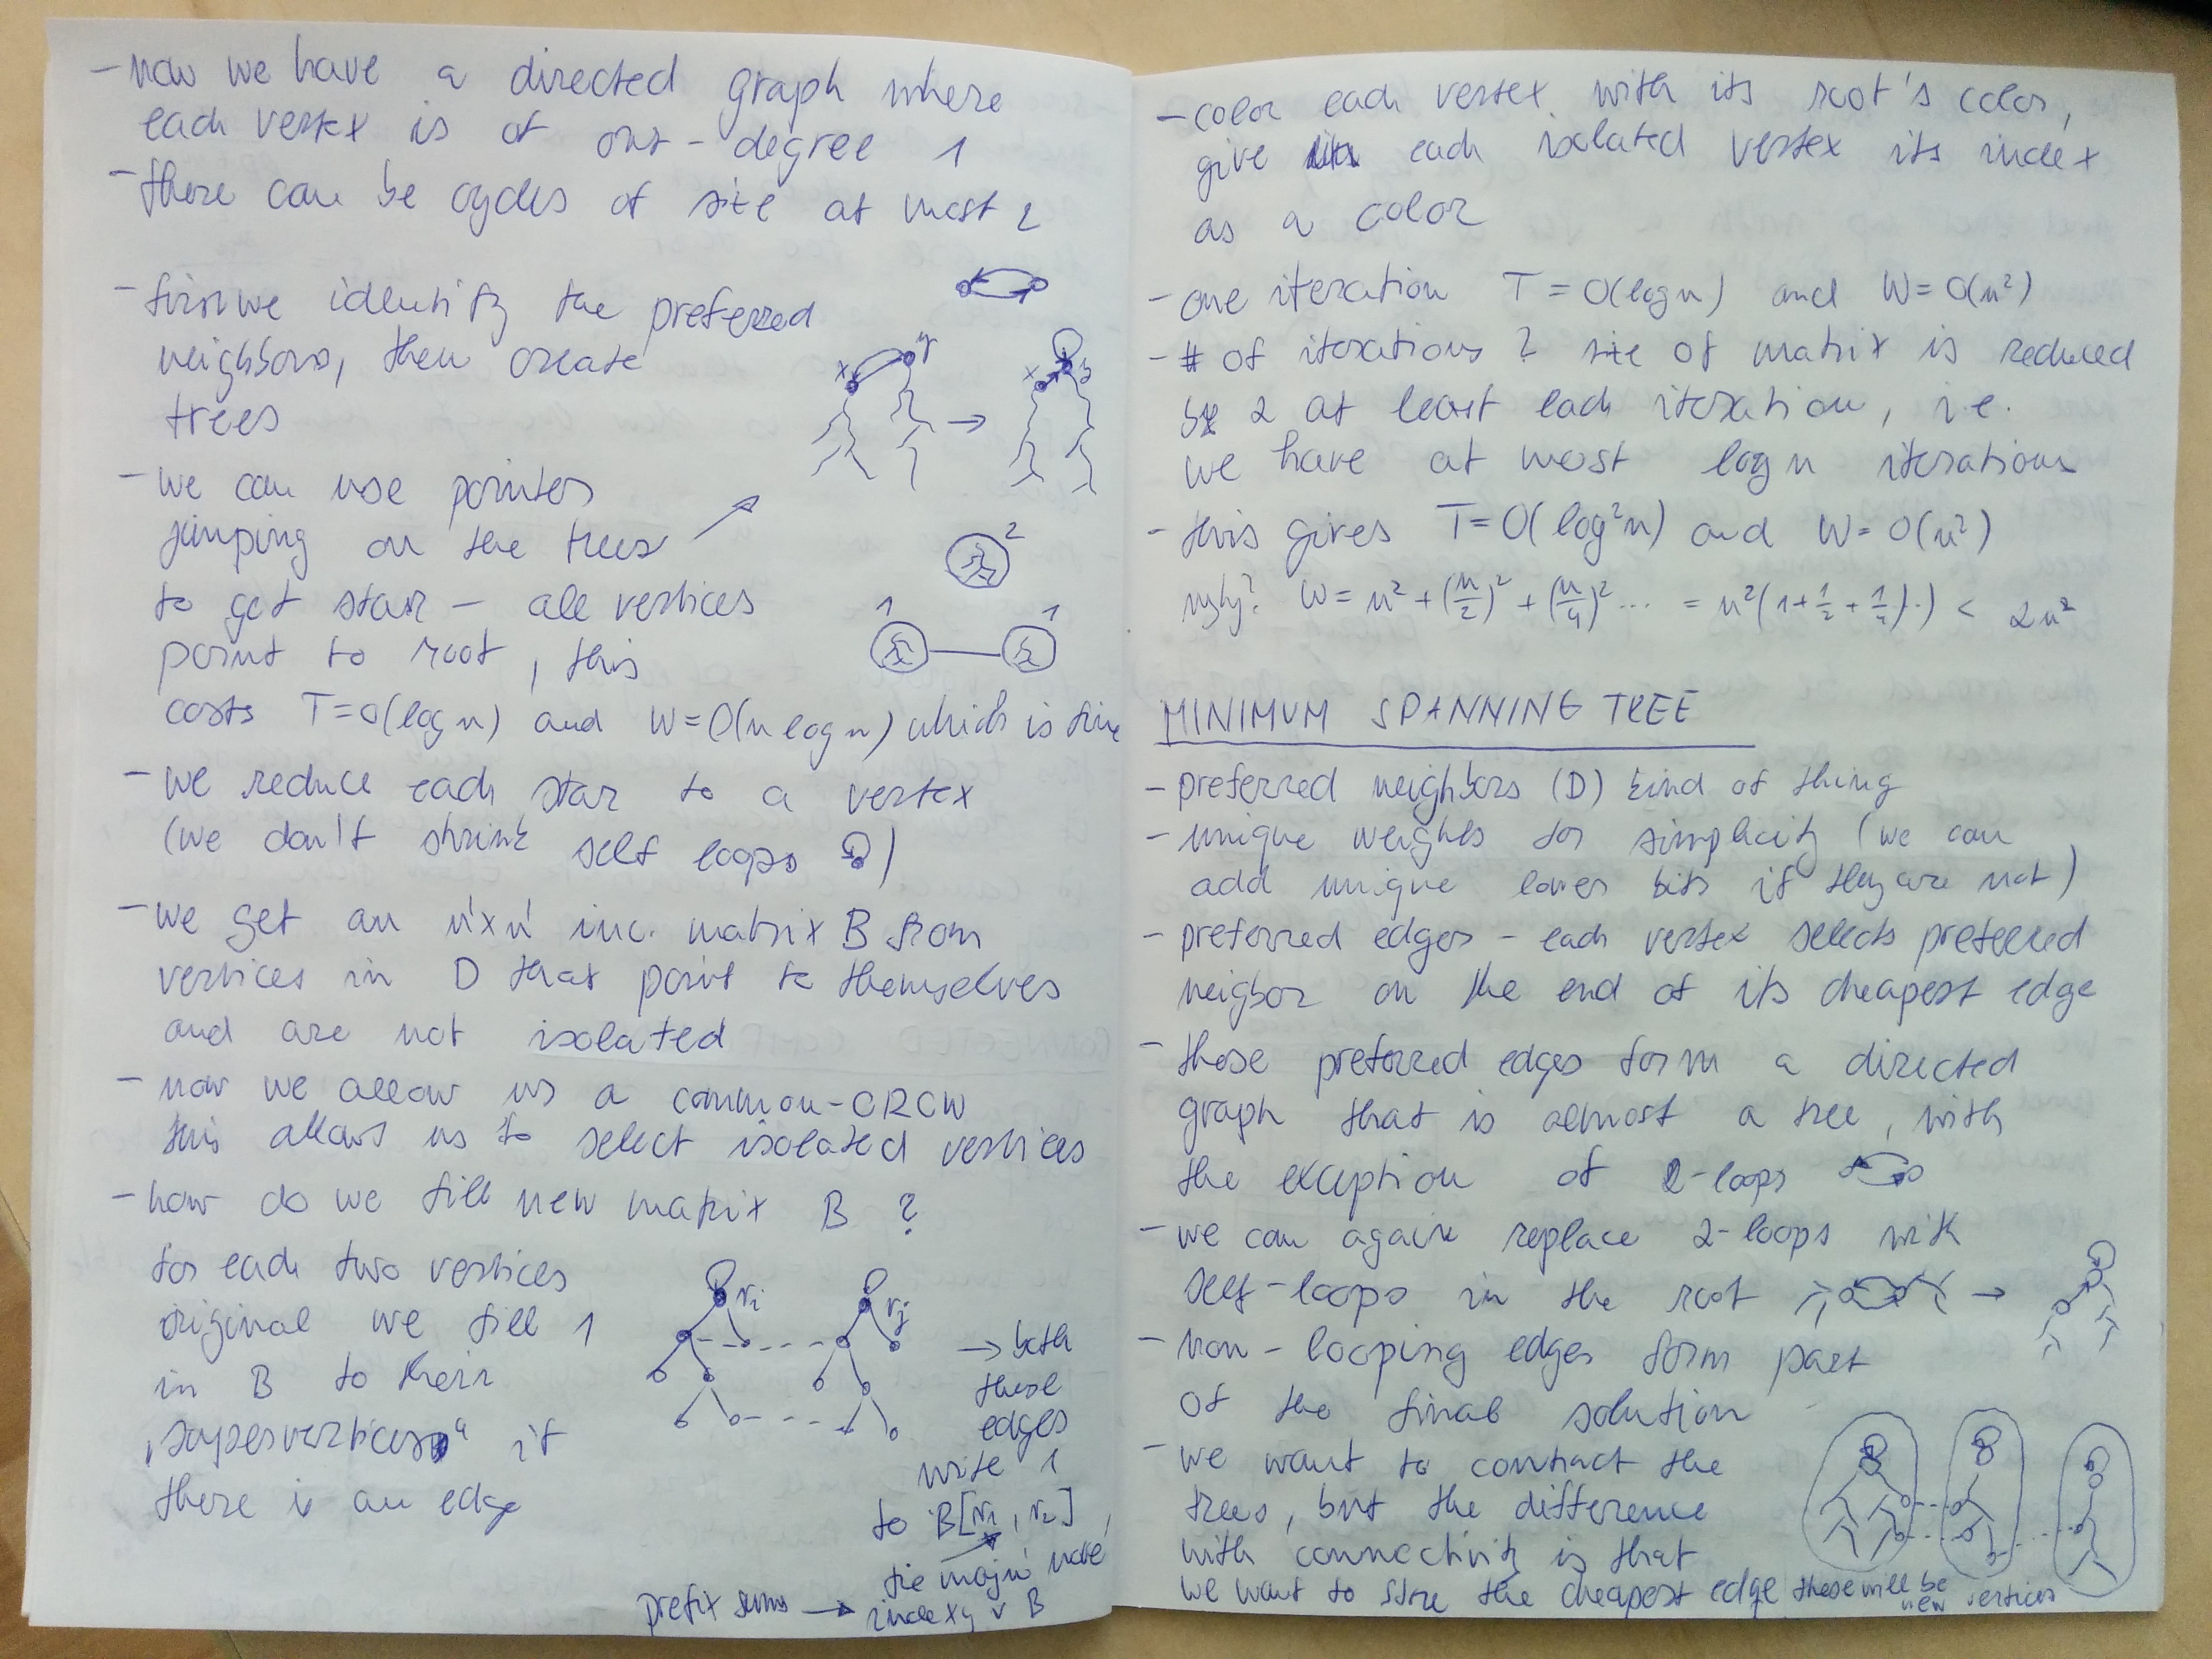 - now we have a directed graph where
each vertex is of out-degree 1
- there can be cycles of size at most 2
- first we identify the preferred
neighbors, then create
trees
x y
x y
- we can use pointer
jumping on the trees
to get star - all vertices
point to root, this
costs T=O(log n) and W=O(n log n) which is fine
2
1 1
- we reduce each star to a vertex
(we don't shrink self loops )
- we get an n'xn' inc. matrix B from
vertices in D that point to themselves
and are not isolated
- now we allow us a common-CRCW
this allows us to select isolated vertices
- how do we fill new matrix B ?
for each two vertices
original we fill 1
in B to their
"supervertices" if
there is an edge
ri rj
→ both
these
edges
write 1
to B[r1, r2],
tie majú nové
prefix sums → indexy v B
- color each vertex with its root's color,
give each isolated vertex its index
as a color
- one iteration T = O(log n) and W = O(n²)
- # of iterations ? size of matrix is reduced
by 2 at least each iteration, i.e.
we have at most log n iterations
- this gives T=O(log²n) and W= O(n²)
why? W = n² + (n/2)² + (n/4)² ... = n²(1+1/2+1/4..) < 2n²
MINIMUM SPANNING TREE
- preferred neighbors (D) kind of thing
- unique weights for simplicity (we can
add unique lower bits if they are not)
- preferred edges - each vertex selects preferred
neigbor on the end of its cheapest edge
- those preferred edges form a directed
graph that is almost a tree, with
the exception of 2-loops
- we can again replace 2-loops with
self-loops in the root →
- non-looping edges form part
of the final solution
- we want to contract the
trees, but the difference
with connectivity is that
we want to store the cheapest edge these will be
new vertices